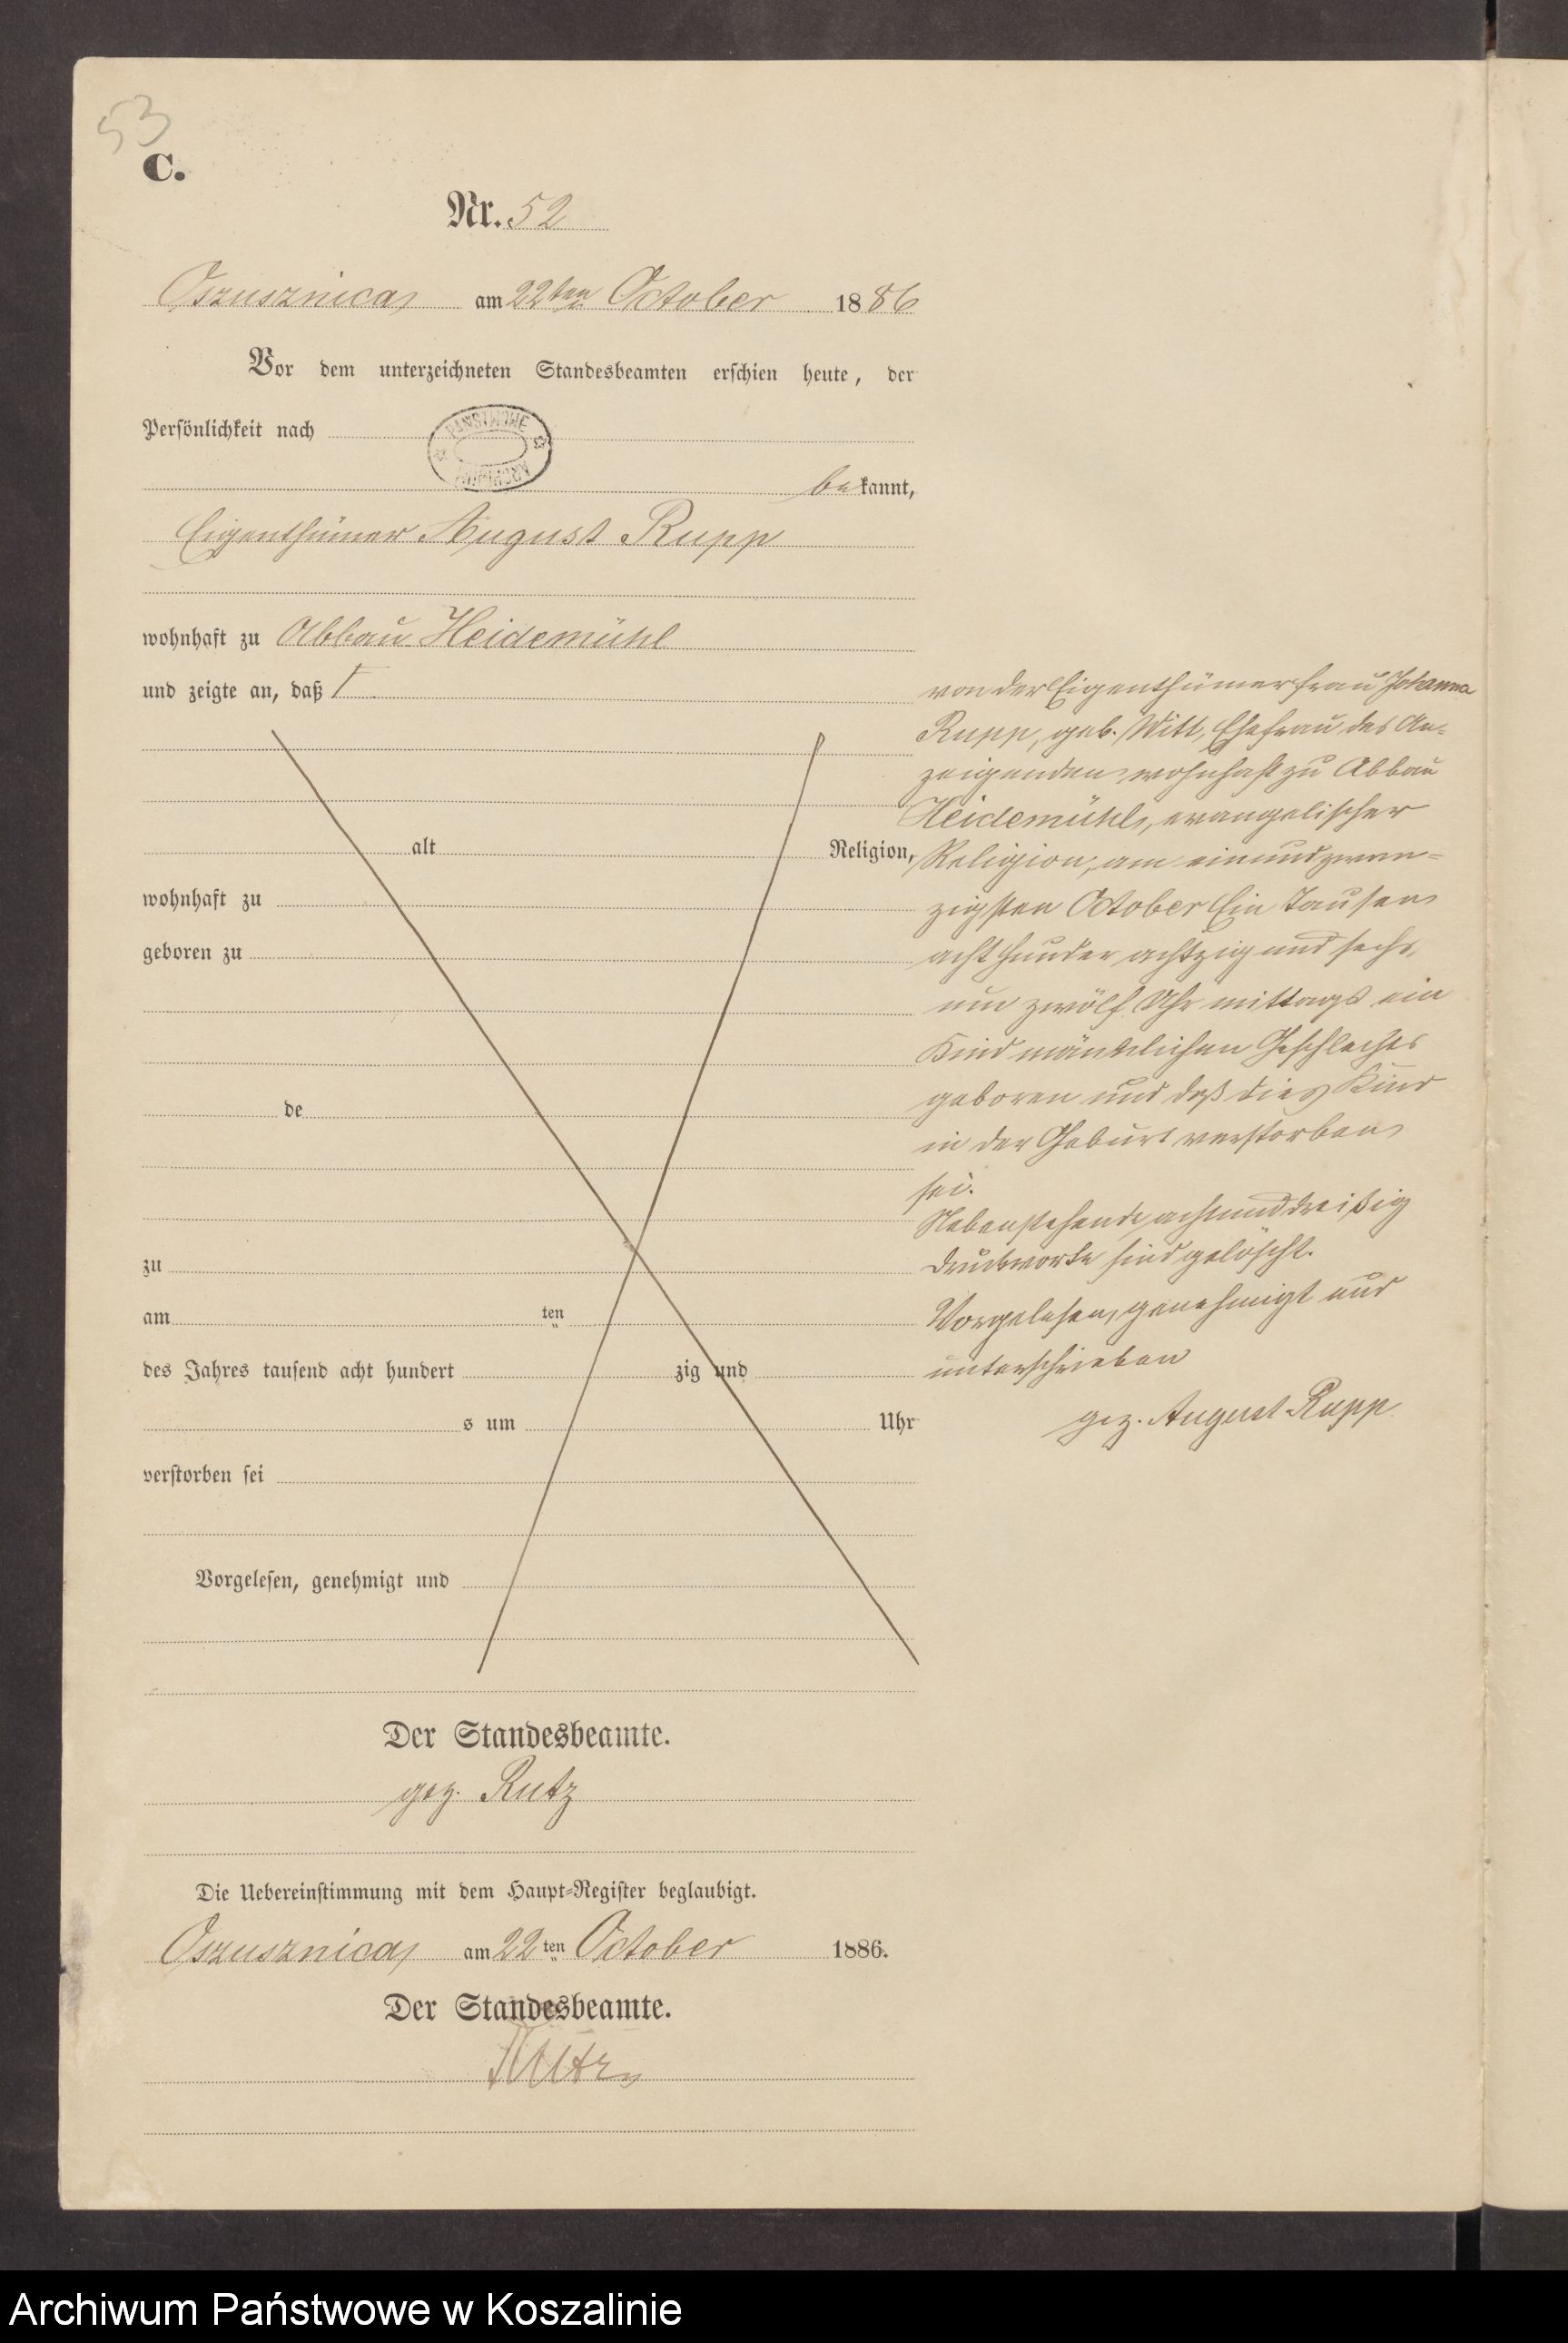 53
C.
Nr. 52
Oszusznica am 22ten October 1886
Vor dem unterzeichneten Standesbeamten erschien heute, der
Persönlichkeit nach
PAŃSTWOWE
ARCHIWUM
bekannt,
Eigenthümer August Rupp
wohnhaft zu Abbau Heidemühl
und zeigte an, daß
alt Religion,
wohnhaft zu
geboren zu
de
zu
am ten
des Jahres tausend acht hundert zig und
s um Uhr
verstorben sei
Vorgelesen, genehmigt und
von der Eigenthümerfrau Johanna
Rupp, geb. Witt, Ehefrau des An-
zeigenden wohnhaft zu Abbau
Heidemühl, evangelischer
Religion, am einundzwan-
zigsten October Ein tausen
acht hunder achtzig und sechs,
um zwölf Uhr mittags ein
Kind mänlichen Geschleches
geboren und daß dies Kind
in der Geburt verstorben
sei.
Nebenstehende achtunddreißig
Druckworte sind gelöscht.
Vorgelesen, genehmigt und
unterschrieben
gez. August Rupp
Der Standesbeamte.
gez. Rutz
Die Uebereinstimmung mit dem Haupt-Register beglaubigt.
Oszusznica am 22ten October 1886.
Der Standesbeamte.
Rutz
Archiwum Państwowe w Koszalinie